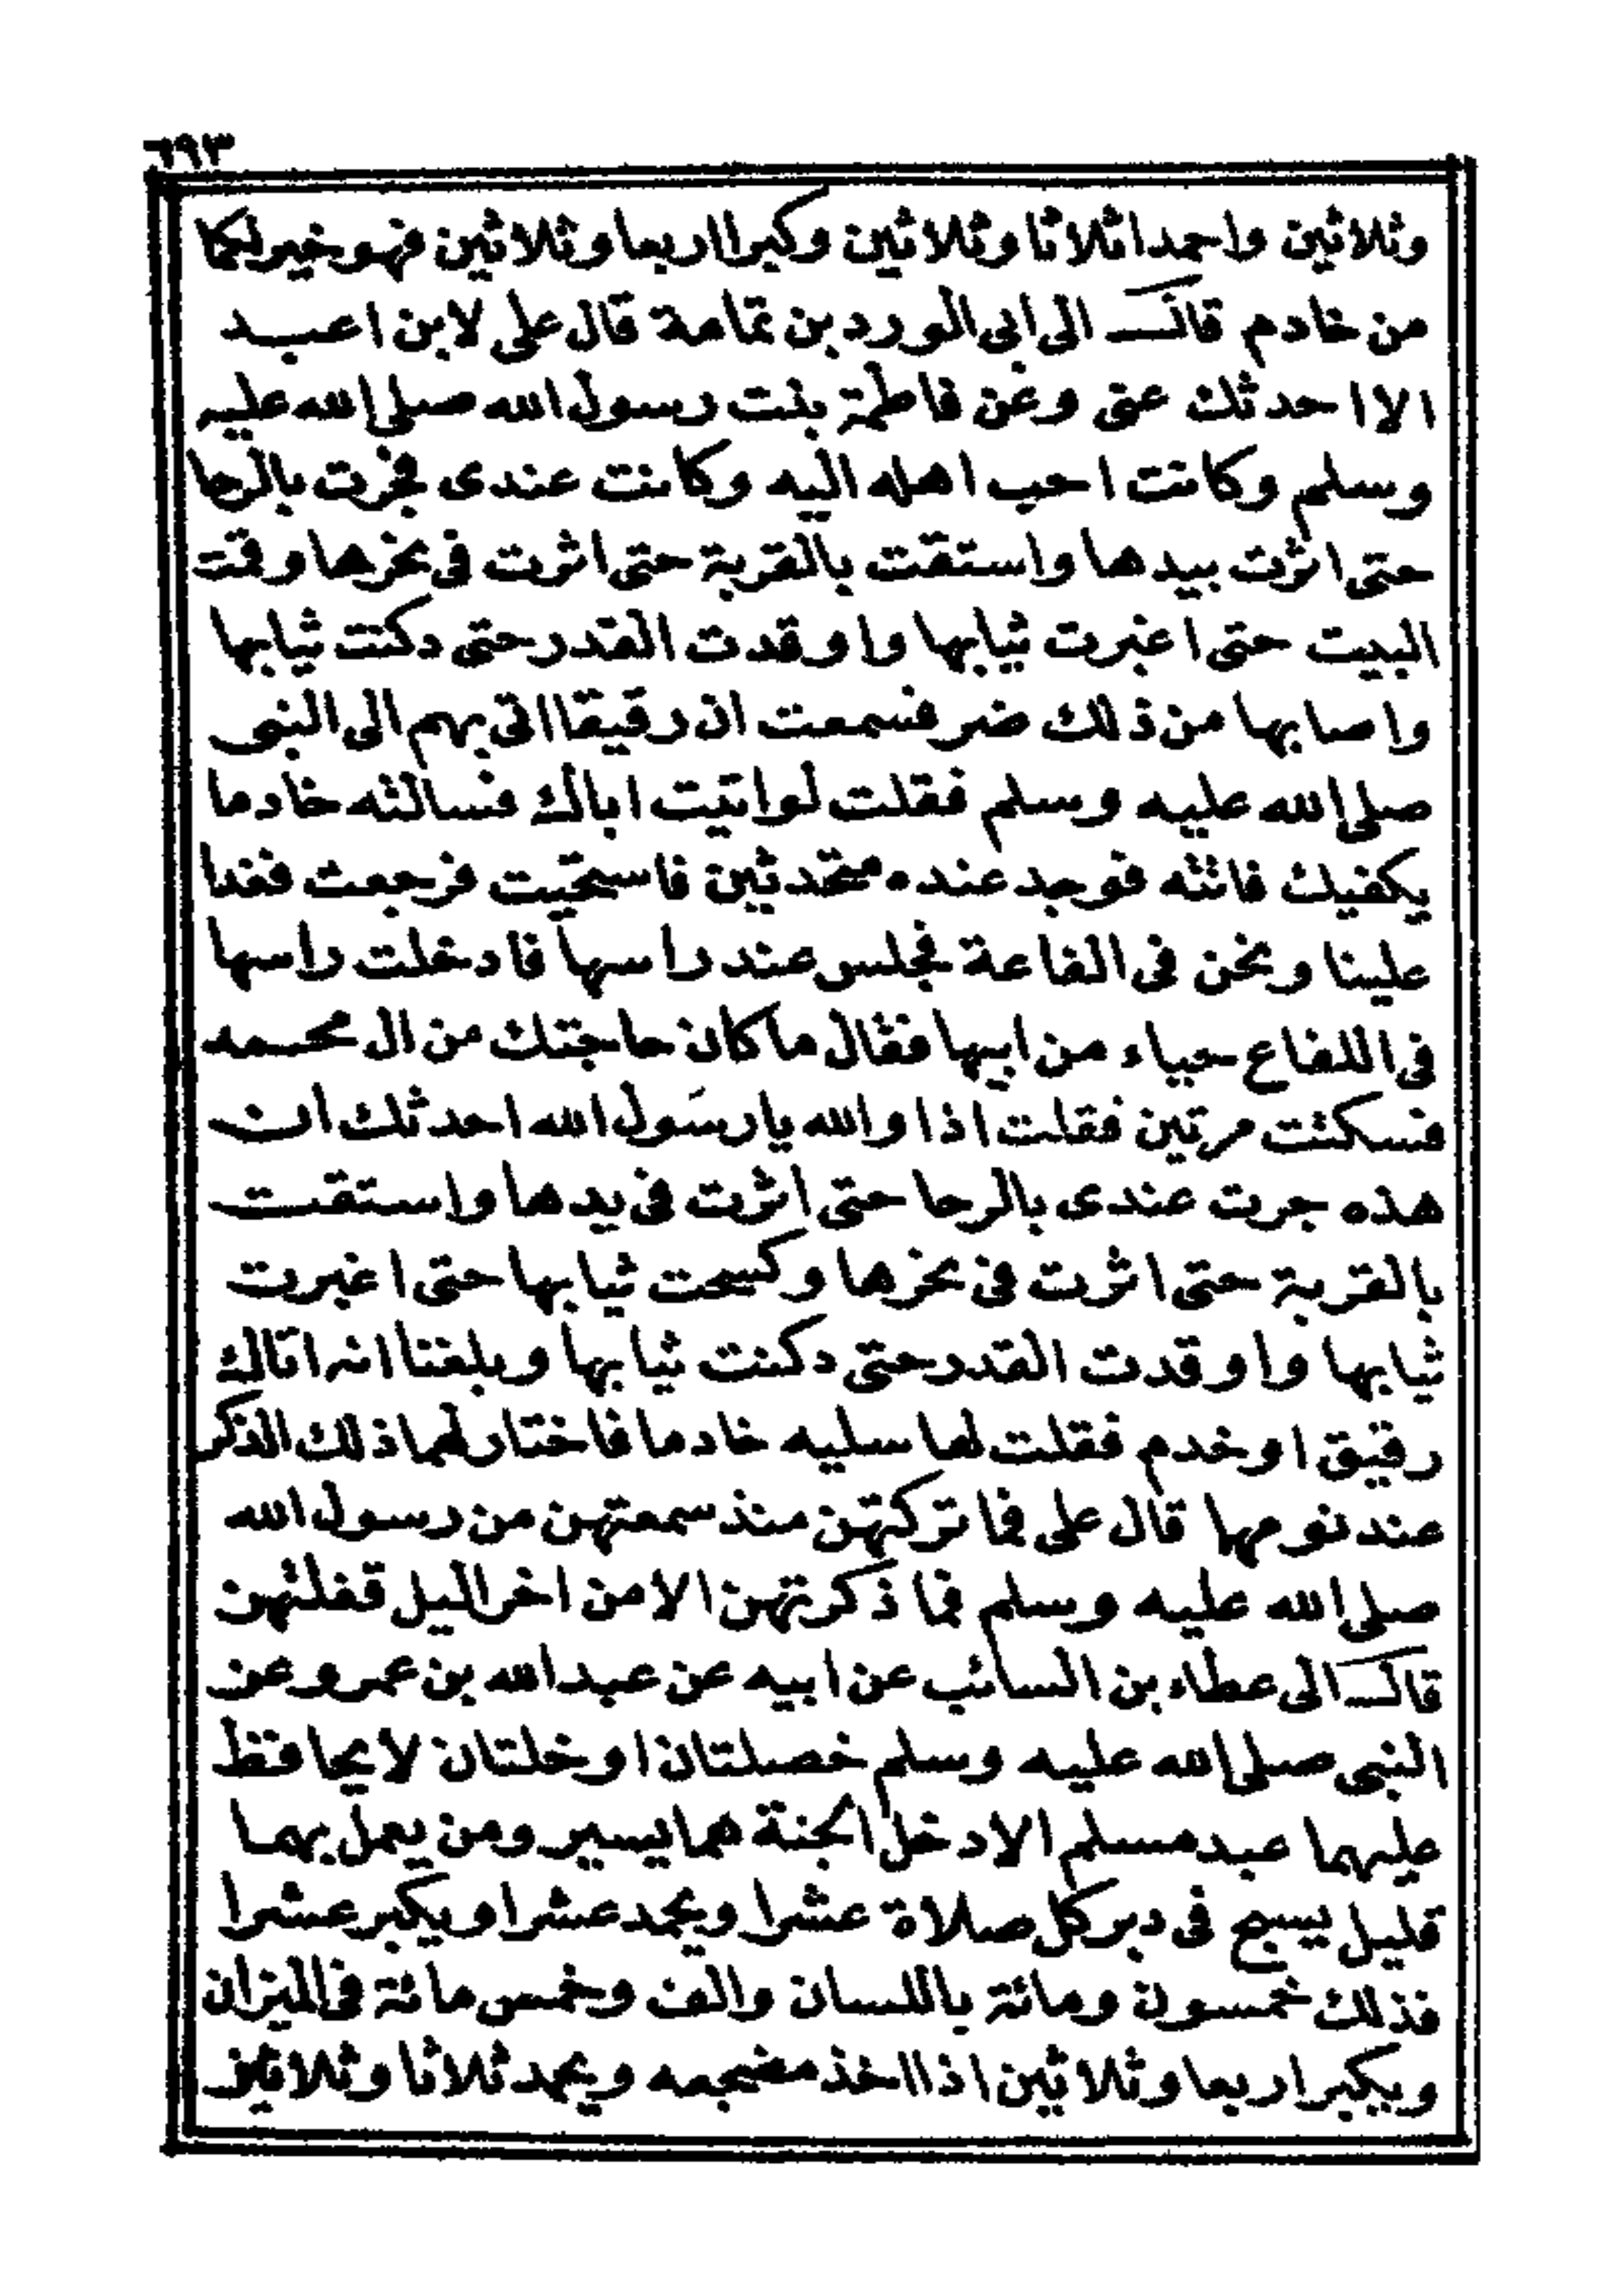 ٦٩٣
وثلاثين واحمدا ثلاثا وثلاثين وكبرا اربعا وثلاثين فهو خير لكما
من خادم قال الى ابى الورد بن ثمامة قال على لابن اعبد
الا احدثك عنى وعن فاطمة بنت رسول الله صلى الله عليه
وسلم وكانت احب اهله اليه وكانت عندى فجرت بالرحا
حتى اثرت بيدها واستقت بالقربة حتى اثرت فى نحرها وقمت
البيت حتى اغبرت ثيابها واوقدت القدر حتى دكنت ثيابها
واصابها من ذلك ضر فسمعت ان رقيقا اتى بهم الى النبى
صلى الله عليه وسلم فقلت لو اتيت اباك فسالته خادما
يكفيك فاتته فوجد عنده متحدثين فاستحيت فرجعت فغدا
علينا ونحن فى الفاعة فجلس عند راسها فادخلت راسها
فى اللفاع حياء من ابيها فقال ما كان حاجتك من ال محمد
فسكتت مرتين فقلت اذا والله يا رسول الله احدثك ان
هذه جرت عندى بالرحا حتى اثرت فى يدها واستقت
بالقربة حتى اثرت فى نحرها وكسحت ثيابها حتى اغبرت
ثيابها واوقدت القدر حتى دكنت ثيابها وبلغنا انه اتاك
رقيق او خدم فقلت لها سليه خادما فاختار لهما ذلك الذكر
عند نومهما قال على فما تركتهن منذ سمعتهن من رسول الله
صلى الله عليه وسلم فما ذكرتهن الا من اخر الليل فقلتهن
قال الى عطاء بن السائب عن ابيه عن عبد الله بن عمرو عن
النبى صلى الله عليه وسلم خصلتان او خلتان لا يحافظ
عليهما عبد مسلم الا دخل الجنة هما يسير ومن يعمل بهما
قليل يسبح فى دبر كل صلاة عشرا ويحمد عشرا ويكبر عشرا
فذلك خمسون ومائة باللسان والف وخمس مائة فى الميزان
ويكبر اربعا وثلاثين اذا اخذ مضجعه ويحمد ثلاثا وثلاثين